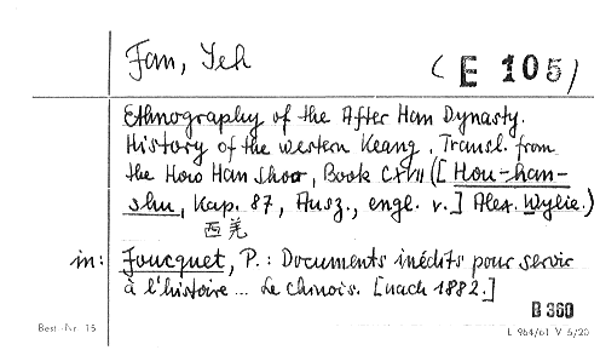 Fan, Yeh
(E 105)
Ethnography of the After Han Dynasty.
History of the western Keang. Transl. from
the How Han Shoo, Book CXVII ([Hou-han-
shu, Kap. 87, Ausz., engl. v.] Alex. Wylie.)
西羌
in: Foucquet, P.: Documents inédits pour servir
à l'histoire ... de Chinois. [nach 1882.]
B 360
Best.-Nr. 15
L 964/61 V 5/20